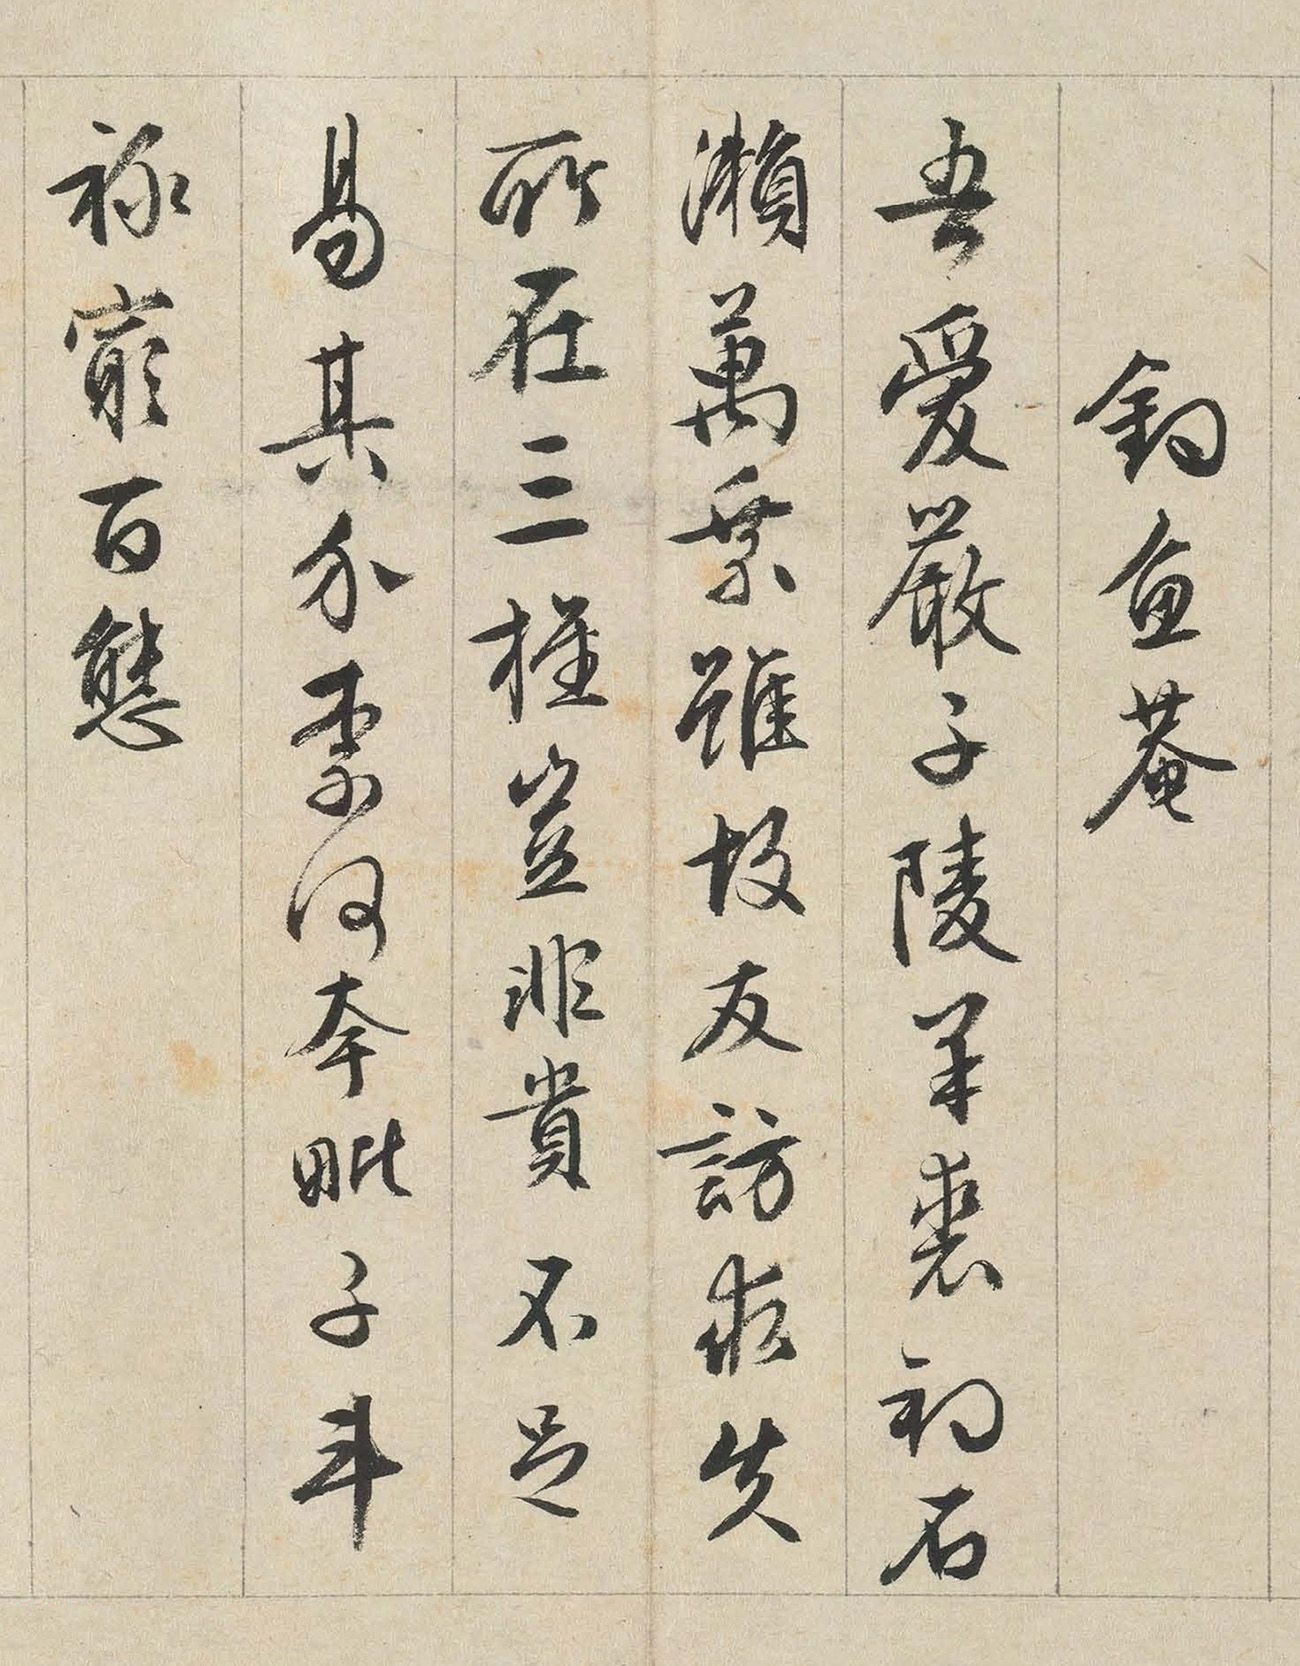 釣魚菴
吾愛嚴子陵羊裘釣石
瀨萬乗雖故友訪求失
所在三旌豈非貴不足
易其介柰何夸毗子斗
祿窮百態